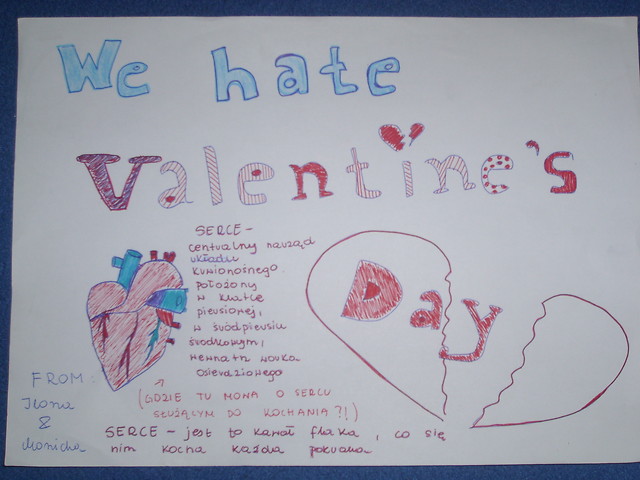 We hate
Valentine's
Day
SERCE -
centralny narząd
układu
krwionośnego
położony
w klatce
piersiowej,
w śródpiersiu
środkowym,
wewnątrz worka
osierdziowego
(GDZIE TU MOWA O SERCU
SŁUŻĄCYM DO KOCHANIA?!)
SERCE - jest to kawał flaka, co się
nim kocha każda pokraka
FROM:
Ilona
&
Monicha